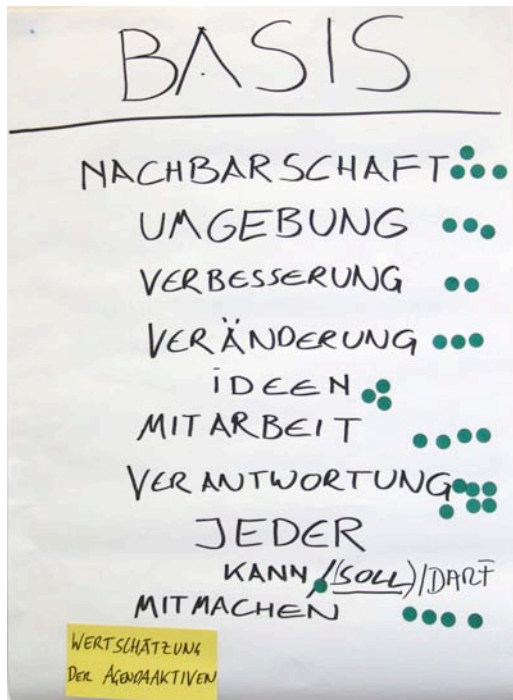 BASIS
NACHBARSCHAFT
UMGEBUNG
VERBESSERUNG
VERÄNDERUNG
IDEEN
MITARBEIT
VERANTWORTUNG
JEDER
KANN/(SOLL)/DARF
MITMACHEN
WERTSCHÄTZUNG
DER AGENDAAKTIVEN